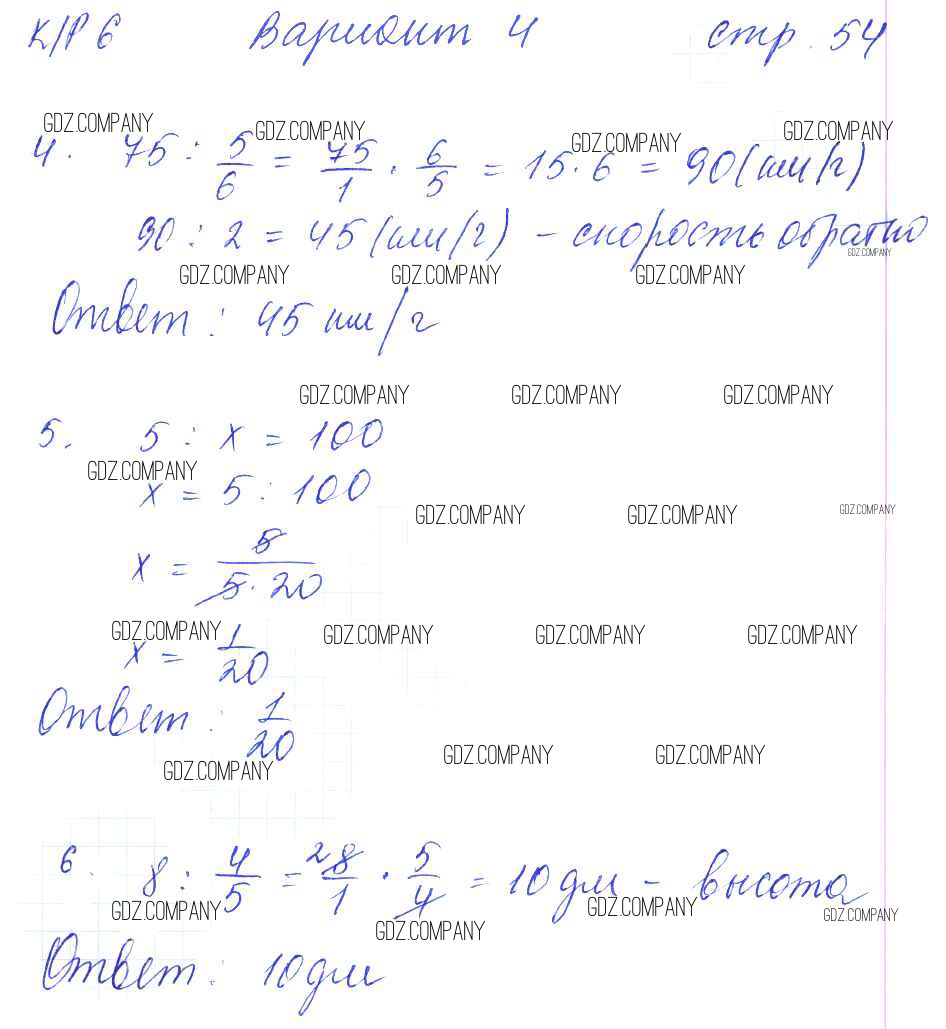 К/Р 6 Вариант 4 стр. 54
GDZ.COMPANY GDZ.COMPANY GDZ.COMPANY GDZ.COMPANY
4. 75 : 5/6 = 75/1 · 6/5 = 15 · 6 = 90 (км/ч)
90 : 2 = 45 (км/ч) – скорость обратно
GDZ.COMPANY GDZ.COMPANY GDZ.COMPANY GDZ.COMPANY
Ответ : 45 км/ч
GDZ.COMPANY GDZ.COMPANY GDZ.COMPANY
5. 5 : x = 100
GDZ.COMPANY
x = 5 : 100
GDZ.COMPANY GDZ.COMPANY GDZ.COMPANY
x = 5/5·20
GDZ.COMPANY GDZ.COMPANY GDZ.COMPANY GDZ.COMPANY
x = 1/20
Ответ : 1/20
GDZ.COMPANY GDZ.COMPANY GDZ.COMPANY
6. 8 : 4/5 = 2 8/1 · 5/4 = 10 дм – высота
GDZ.COMPANY GDZ.COMPANY GDZ.COMPANY GDZ.COMPANY
Ответ : 10 дм